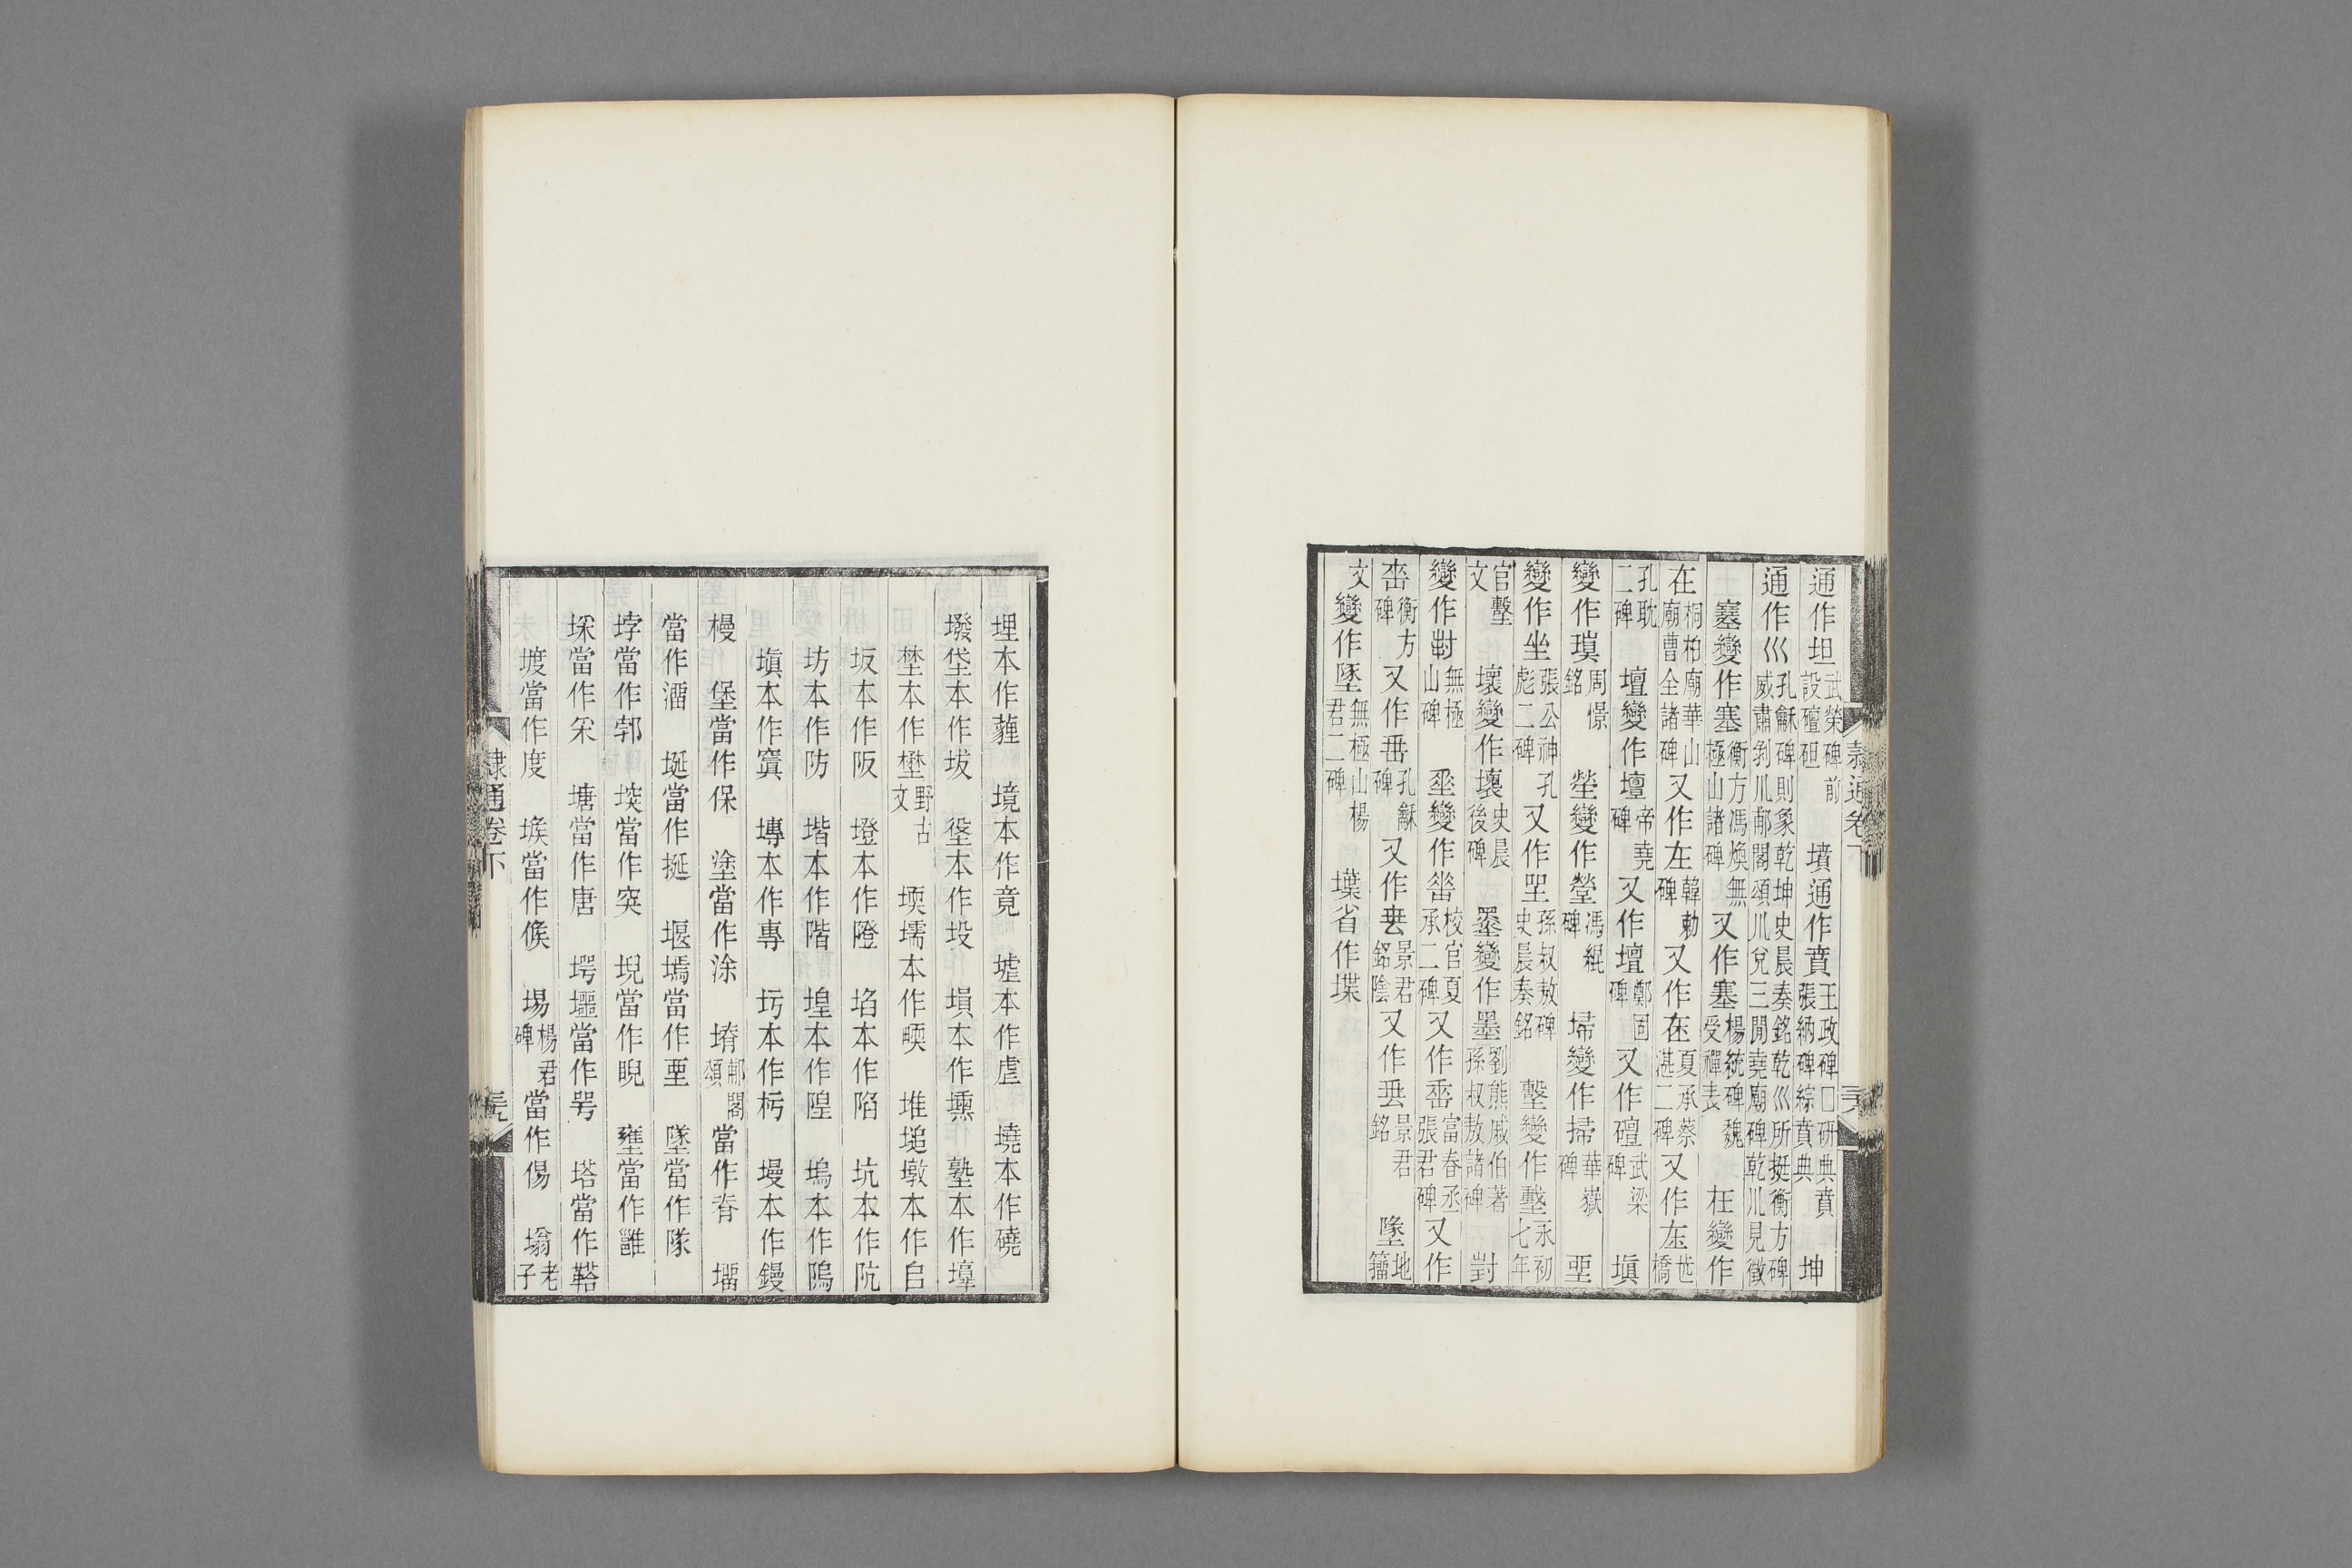 通作坦武榮碑前設䃪䂣 墳通作賁王政碑□研典賁張納碑綜賁典 坤
通作巛孔龢碑則象乾坤史晨奏銘乾巛所挺衡方碑威肅剥川郙閣頌川兌三閒堯廟碑乾川見徵
塞變作塞衡方馮煥無極山諸碑 又作塞楊統碑魏受禪表 在變作
在桐柏廟華山廟曹全諸碑 又作左韓勅碑 又作在夏承蔡湛二碑 又作左㐀橋
孔耽二碑 壇變作壇帝堯碑 又作壇鄭固碑 又作䃪武梁碑 塡
變作瑱周憬銘 塋變作塋馮緄碑 埽變作掃華嶽碑 垔
變作坐張公神彪二碑孔 又作坕孫叔敖碑史晨奏銘 墼變作墼永初七年
官墼文 壞變作壞史晨後碑 墨變作墨劉熊戚伯著孫叔敖諸碑 封
變作封無極山碑 垂變作𡍮校官夏承二碑 又作𡸁富春丞張君碑 又作
𡸁衡方碑 又作𠂹孔龢碑 又作𠂹景君銘陰 又作𠂹景君銘 墬地籀
文變作墬無極山楊君二碑 堞省作堞
隸通卷下
埋本作薶 境本作竟 墟本作虛 墝本作磽
墢垡本作坺 垼本作㘳 塤本作壎 塾本作𡑣
埜本作壄野古文 堧壖本作㽭 堆塠墩本作𠂤
坂本作阪 墱本作隥 埳本作陷 坑本作阬
坊本作防 堦本作階 堭本作隍 塢本作隖
塡本作窴 塼本作專 圬本作杇 墁本作鏝
槾 堡當作保 塗當作涂 塉郙閣頌當作脊 塯
當作溜 埏當作挻 堰墕當作垔 墜當作隊
垶當作郭 堗當作突 堄當作睨 壅當作雝
埰當作采 塘當作唐 堮壥當作咢 塔當作鞈
塛當作度 堠當作候 埸楊君碑當作傷 塕老子
隸通卷下 三九